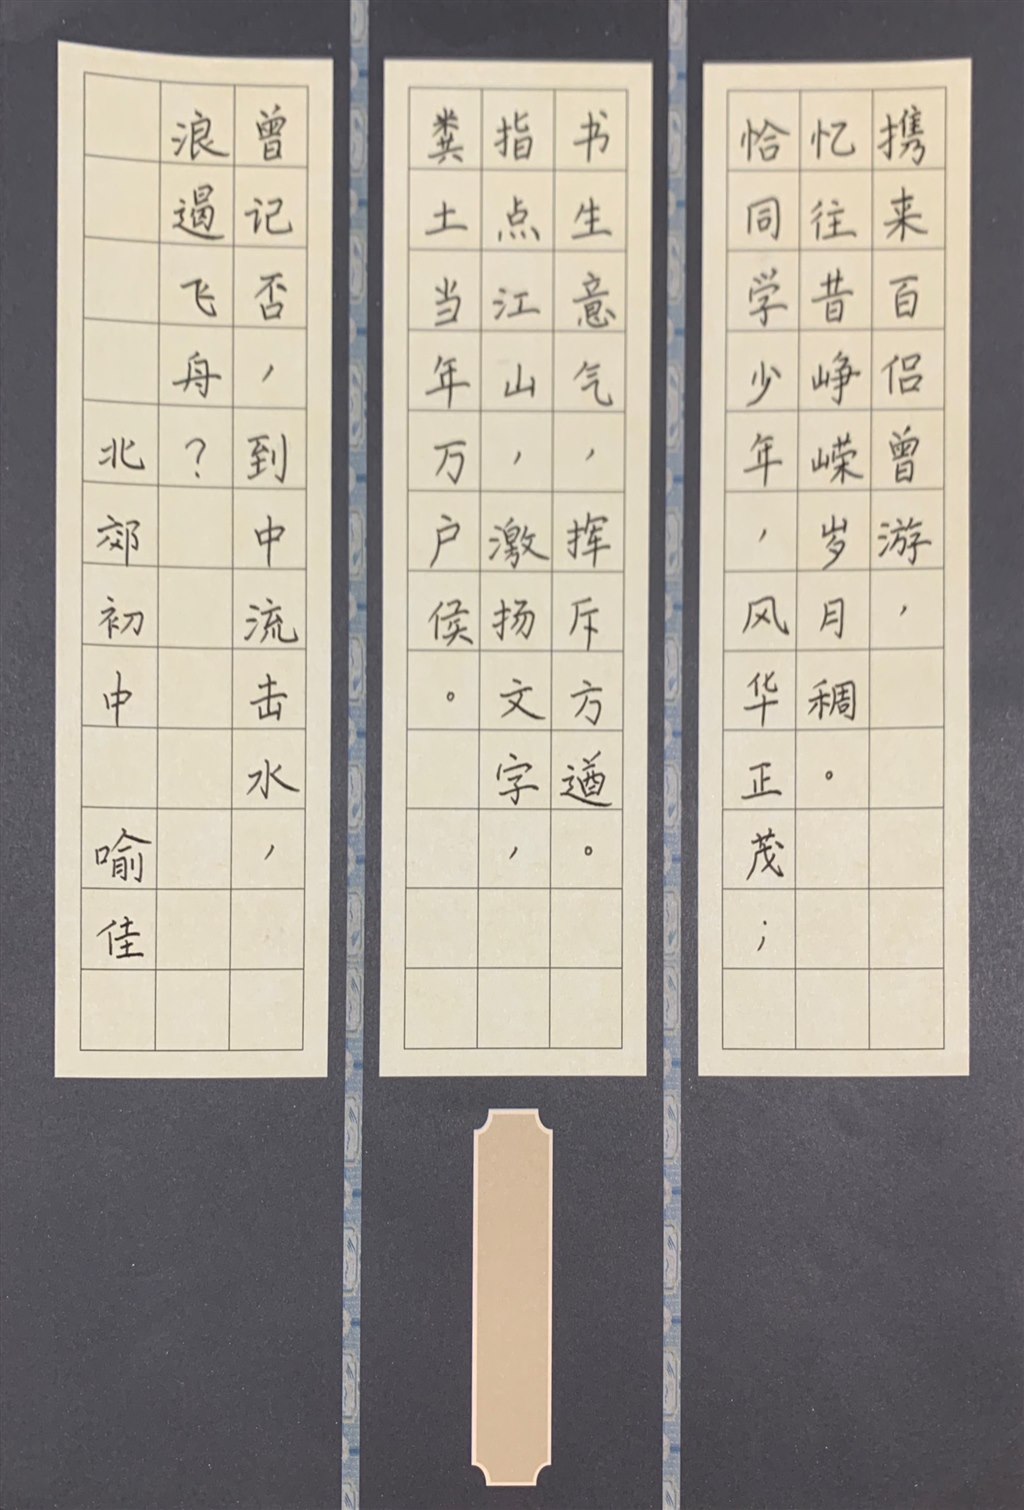 携来百侣曾游，
忆往昔峥嵘岁月稠。
恰同学少年，风华正茂；
书生意气，挥斥方遒。
指点江山，激扬文字，
粪土当年万户侯。
曾记否，到中流击水，
浪遏飞舟？
北郊初中 喻佳